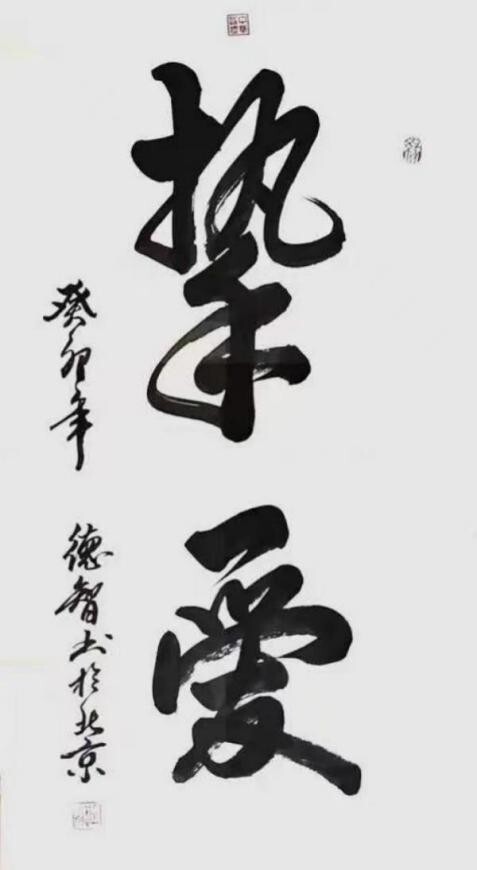 挚爱
癸卯年
德智书于北京